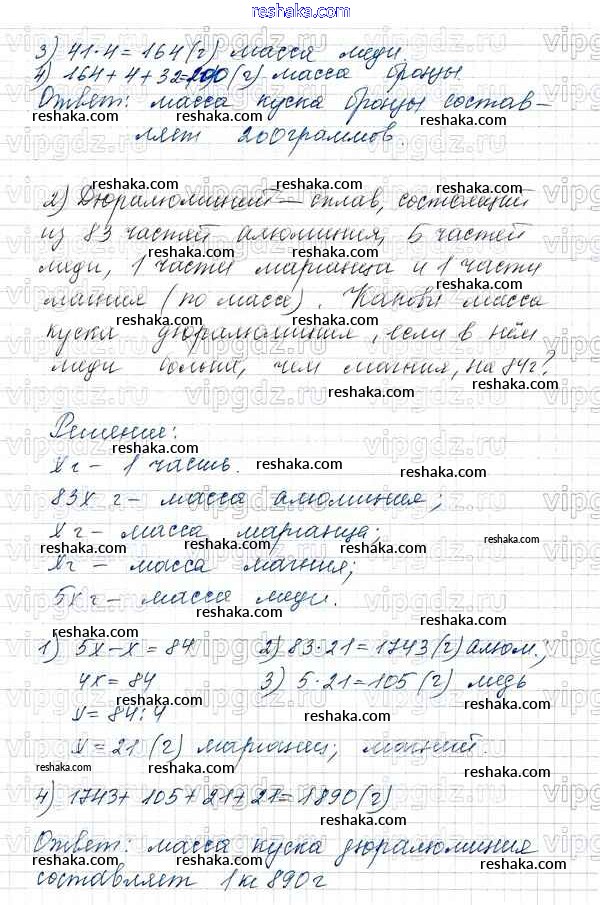 reshaka.com
3) 41·4=164(г) масса меди
4) 164+4+32=200(г) масса бронзы.
Ответ: масса куска бронзы состав-
ляет 200граммов.
2) Дюралюминий — сплав, состоящий
из 83 частей алюминия, 5 частей
меди, 1 части марганца и 1 части
магния (по массе). Какова масса
куска дюралюминия, если в нём
меди больше, чем магния, на 84г?
Решение:
xг – 1 часть.
83x г – масса алюминия;
xг – масса марганца;
xг – масса магния;
5xг – масса меди.
1) 5x–x=84 2) 83·21=1743(г) алюм.;
4x=84 3) 5·21=105(г) медь
x=84:4
x=21(г) марганец; магний.
4) 1743+105+21+21=1890(г)
Ответ: масса куска дюралюминия
составляет 1кг 890г